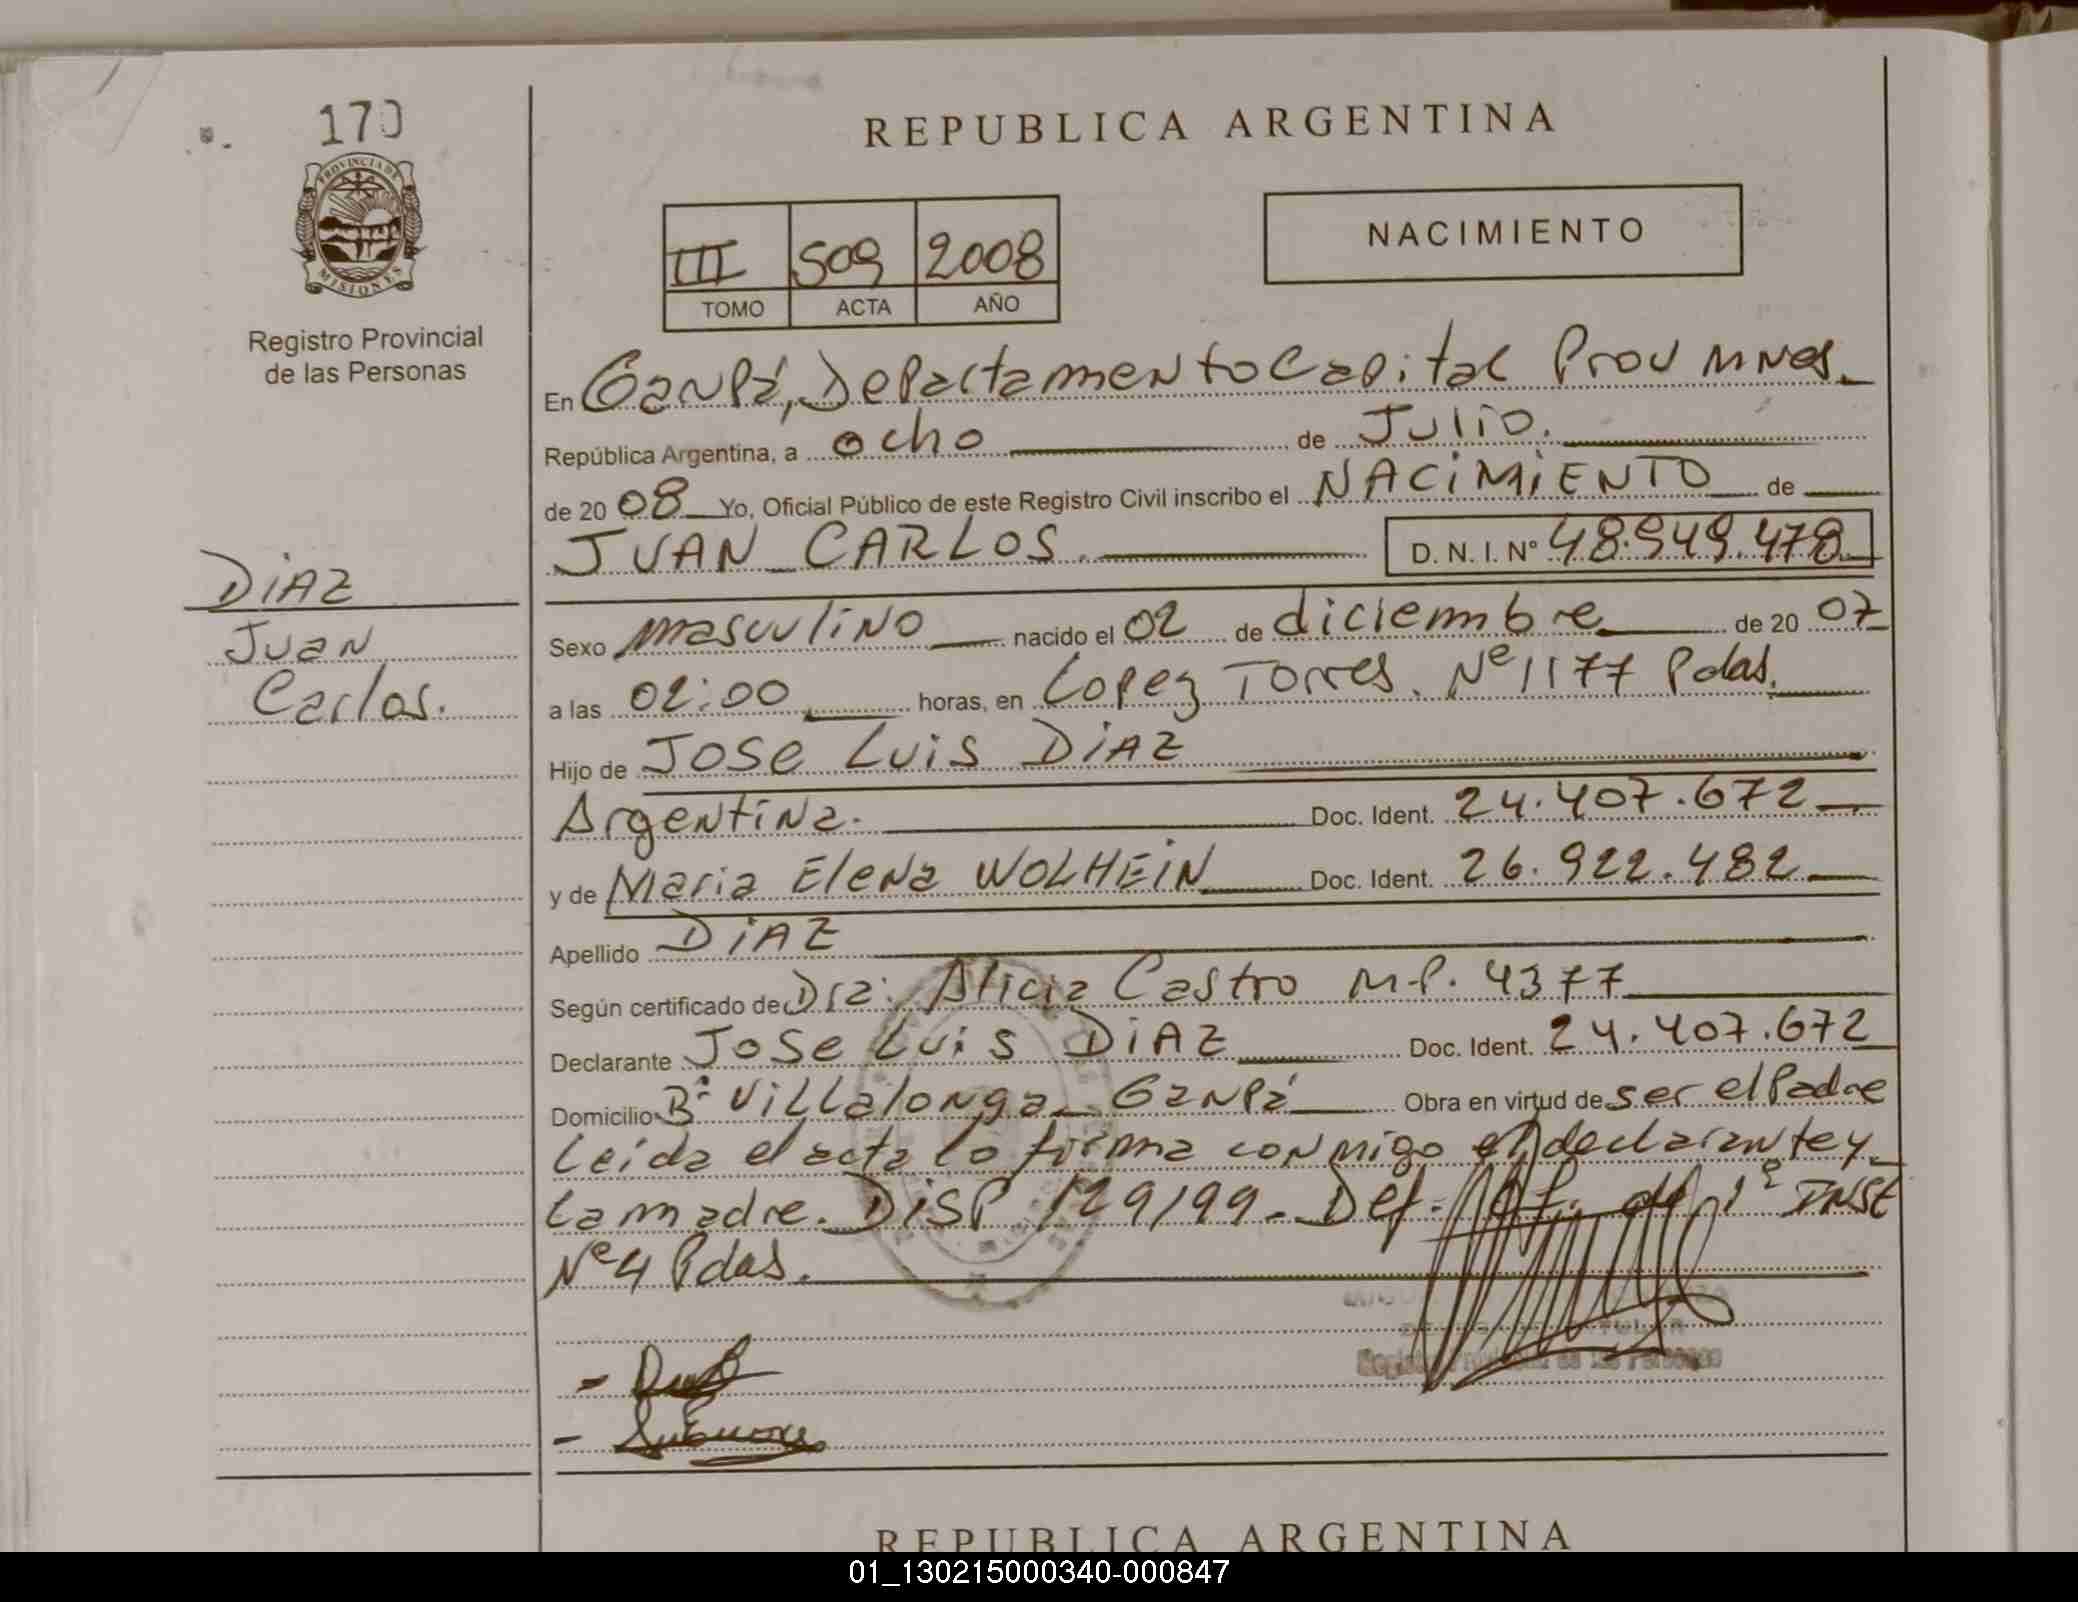 170
PROVINCIA DE
MISIONES
Registro Provincial
de las Personas
REPUBLICA ARGENTINA
III 509 2008
TOMO ACTA AÑO
NACIMIENTO
En Garupá, Departamento Capital Prov Mnes.
República Argentina, a ocho de Julio.
de 20 08 Yo, Oficial Público de este Registro Civil inscribo el NACIMIENTO de
JUAN CARLOS. D. N. I. Nº 48.949.478
DIAZ
Juan
Carlos.
Sexo masculino nacido el 02 de diciembre de 20 07
a las 02:00 horas, en Lopez Torres. Nº 1177 Pdas.
Hijo de Jose Luis DIAZ
Argentina. Doc. Ident. 24.407.672
y de Maria Elena WOLHEIN Doc. Ident. 26.922.482
Apellido DIAZ
Según certificado de Dra. Alicia Castro M.P. 4377
Declarante Jose Luis DIAZ Doc. Ident. 24.407.672
Domicilio Bº Villalonga Garupá Obra en virtud de ser el Padre
Leida el acta la firma conmigo el declarante y
la madre. DISP 129/99. Def. Of. de 1º INST
Nº 4 Pdas.
Registro Provincial de las Personas
REPUBLICA ARGENTINA
01_130215000340-000847